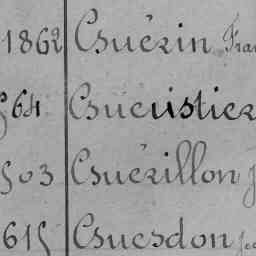 1862 Guérin Fran
564 Gueustier
503 Guérillon J
615 Guesdon Jea